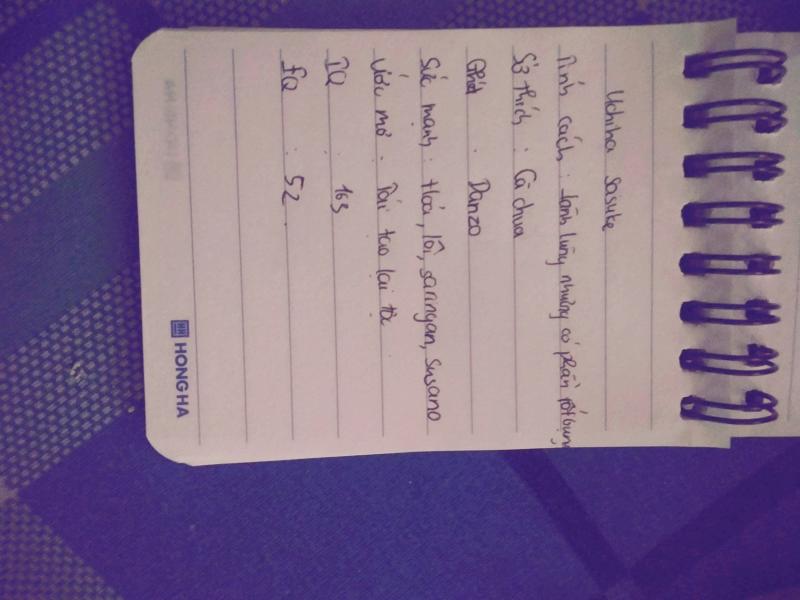 Uchiha Sasuke
Tính cách : lạnh lùng nhưng có phần tốt bụng
Sở thích : Cà chua
Ghét : Danzo
Sức mạnh : Hoả, lôi, saringan, Susano
Ước mơ : Tái tạo lại tộc
IQ : 163
EQ : 52
HONGHA